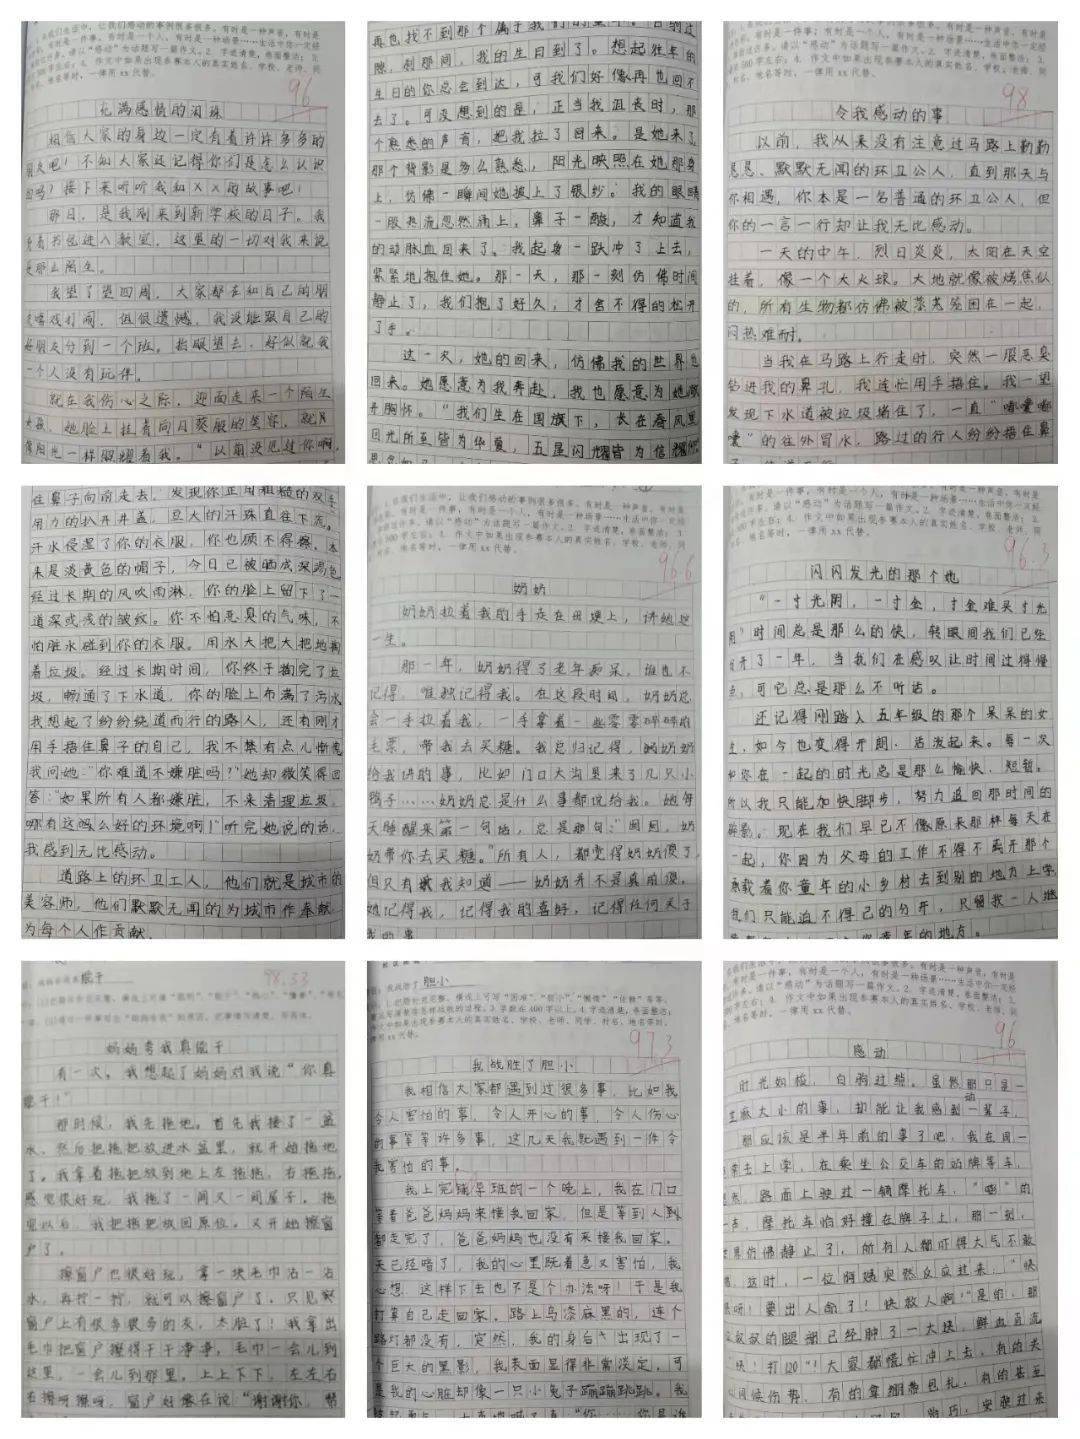 96
充满感情的泪珠
相信大家的身边一定有着许许多多的
朋友吧！不知大家还记得你们是怎么认识
的吗？接下来听听我和XX的故事吧！
那日，是我刚来到新学校的日子。我
背着书包进入教室，这里的一切对我来说
是那么陌生。
我望了望四周，大家都在和自己的朋
友嬉戏打闹，但很遗憾，我没能跟自己的
好朋友分到一个班。抬眼望去，好似就我
一个人没有玩伴。
就在我伤心之际，迎面走来一个陌生
女孩，她脸上挂着向日葵般的笑容，就
像阳光一样照耀着我。“以前没见过你啊，
隙，刹那间，我的生日到了。想起往年的
生日的你总会到达，可我们好像再也回不
去了。可没想到的是，正当我沮丧时，那
个熟悉的声音，把我拉了回来。是她来了
那个背影是多么熟悉，阳光映照在她那身
上，仿佛一瞬间她披上了银纱。我的眼睛
一股热流忽然涌上，鼻子一酸，才知道我
的动脉血回来了。我起身一跃冲了上去，
紧紧地抱住她。那一天，那一刻仿佛时间
静止了，我们抱了好久，才舍不得的松开
了手。
这一次，她的回来，仿佛我的世界也
回来。她愿意为我奔赴，我也愿意为她敞
开胸怀。“我们生在国旗下，长在春风里
目光所至皆为华夏，五星闪耀皆为信仰。
98
令我感动的事
以前，我从来没有注意过马路上勤勤
恳恳、默默无闻的环卫工人，直到那天与
你相遇，你本是一名普通的环卫工人，但
你的一言一行却让我无比感动。
一天的中午，烈日炎炎，太阳在天空
挂着，像一个大火球。大地就像被烤焦似
的，所有生物都仿佛被蒸笼笼困在一起，
闷热难耐。
当我在马路上行走时，突然一股恶臭
钻进我的鼻孔，我连忙用手捂住。我一望
发现下水道被垃圾堵住了，一直“嘟噜嘟
噜”的往外冒水，路过的行人纷纷捂住鼻
住鼻子向前走去，发现你正用粗糙的双手
用力的扒开井盖，豆大的汗珠直往下流。
汗水侵湿了你的衣服，你也顾不得擦，本
来是淡黄色的帽子，今日已被晒成深褐色
经过长期的风吹雨淋，你的脸上留下了一
道深或浅的皱纹。你不怕恶臭的气味，不
怕脏水碰到你的衣服。用水大把大把地掏
着垃圾。经过长期时间，你终于掏完了垃
圾，畅通了下水道，你的脸上布满了污水
我想起了纷纷绕道而行的路人，还有刚才
用手捂住鼻子的自己，我不禁有点儿惭愧
我问她：“你难道不嫌脏吗？”她却微笑得回
答：“如果所有人都嫌脏，不来清理垃圾，
哪有这么好的环境啊！”听完她说的话，
我感到无比感动。
道路上的环卫工人，他们就是城市的
美容师，他们默默无闻的为城市作奉献
为每个人作贡献
96.6
奶奶
奶奶拉着我的手走在田埂上，讲她这
一生。
那一年，奶奶得了老年痴呆，谁也不
记得，唯独记得我。在这段时间，奶奶总
会一手拉着我，一手拿着一些零零碎碎的
毛票，带我去买糖。我总归记得，奶奶
给我讲的事，比如门口大沟里来了几只小
鸭子……奶奶总是什么事都说给我。她每
天睡醒来第一句话，总是那句：“囡囡，奶
奶带你去买糖。”所有人，都觉得奶奶傻了，
但只有我知道——奶奶并不是真的傻，
她记得我，记得我的喜好，记得任何关于
我的事
96.3
闪闪发光的那个她
“一寸光阴，一寸金，寸金难买寸光
阴”时间总是那么的快，转眼间我们已经
分开了一年，当我们在感叹让时间过得慢
点，可它总是那么不听话。
还记得刚踏入五年级的那个呆呆的女
生，如今也变得开朗、活泼起来。每一次
和你在一起的时光总是那么愉快、短暂。
所以我只能加快脚步，努力追回那时间的
碎影。现在我们早已不像原来那样每天在
一起，你因为父母的工作不得不离开那个
承载着你童年的小乡村去到别的地方上学
我们只能迫不得已的分开，只留我一人
能干
98.33
妈妈夸我真能干
有一次，我想起了妈妈对我说“你真
能干！”
那时候，我先拖地。首先我接了一盆
水，然后把拖把放进水盆里，就开始拖地
了。我拿着拖把放到地上左拖拖，右拖拖，
感觉很好玩，我拖了一间又一间屋子。拖
完以后，我把拖把放回原位。又开始擦窗
户了。
擦窗户也很好玩，拿一块毛巾沾一沾
水，再拧一拧，就可以擦窗户了。只见
窗户上有很多很多的灰，太脏了！我拿出
毛巾把窗户擦得干干净净，毛巾一会儿到
这里，一会儿到那里。上上下下，左左右
右擦呀擦呀，窗户好像在说“谢谢你，帮
胆小
97.3
我战胜了胆小
我相信大家都遇到过很多事，比如我
令人害怕的事，令人开心的事，令人伤心
的事等等许多事，这几天我就遇到一件令
我害怕的事。
我上完辅导班的一个晚上，我在门口
等着爸爸妈妈来接我回家，但是等到人到
都走完了，爸爸妈妈也没有来接我回家。
天已经暗了，我的心里既着急又害怕，我
心想，这样下去也不是个办法呀！于是我
打算自己走回家，路上乌漆麻黑的，连个
路灯都没有，突然，我的身后出现了一
个巨大的黑影，我表面显得非常淡定，可
是我的心脏却像一只小兔子蹦蹦跳跳。我
96
感动
时光如梭，白驹过隙。虽然那只是一
芝麻大小的事，却能让我感动一辈子，
那应该是半年前的事了吧，我在周一
去上学，在乘坐公交车的站牌等车，
路面上驶过一辆摩托车，“嘭”的
一声，摩托车恰好撞在牌子上，那一刻，
世界仿佛静止了，所有人都吓得大气不敢
这时，一位阿姨突然反应过来，“快
呀！要出人命了！快救人啊！”是的，那
叔叔的腿部已经肿了一大块，鲜血直流
快！打120”！大家都慌忙冲上去，有的关
心问候伤势，有的拿绷带包扎，有的甚至